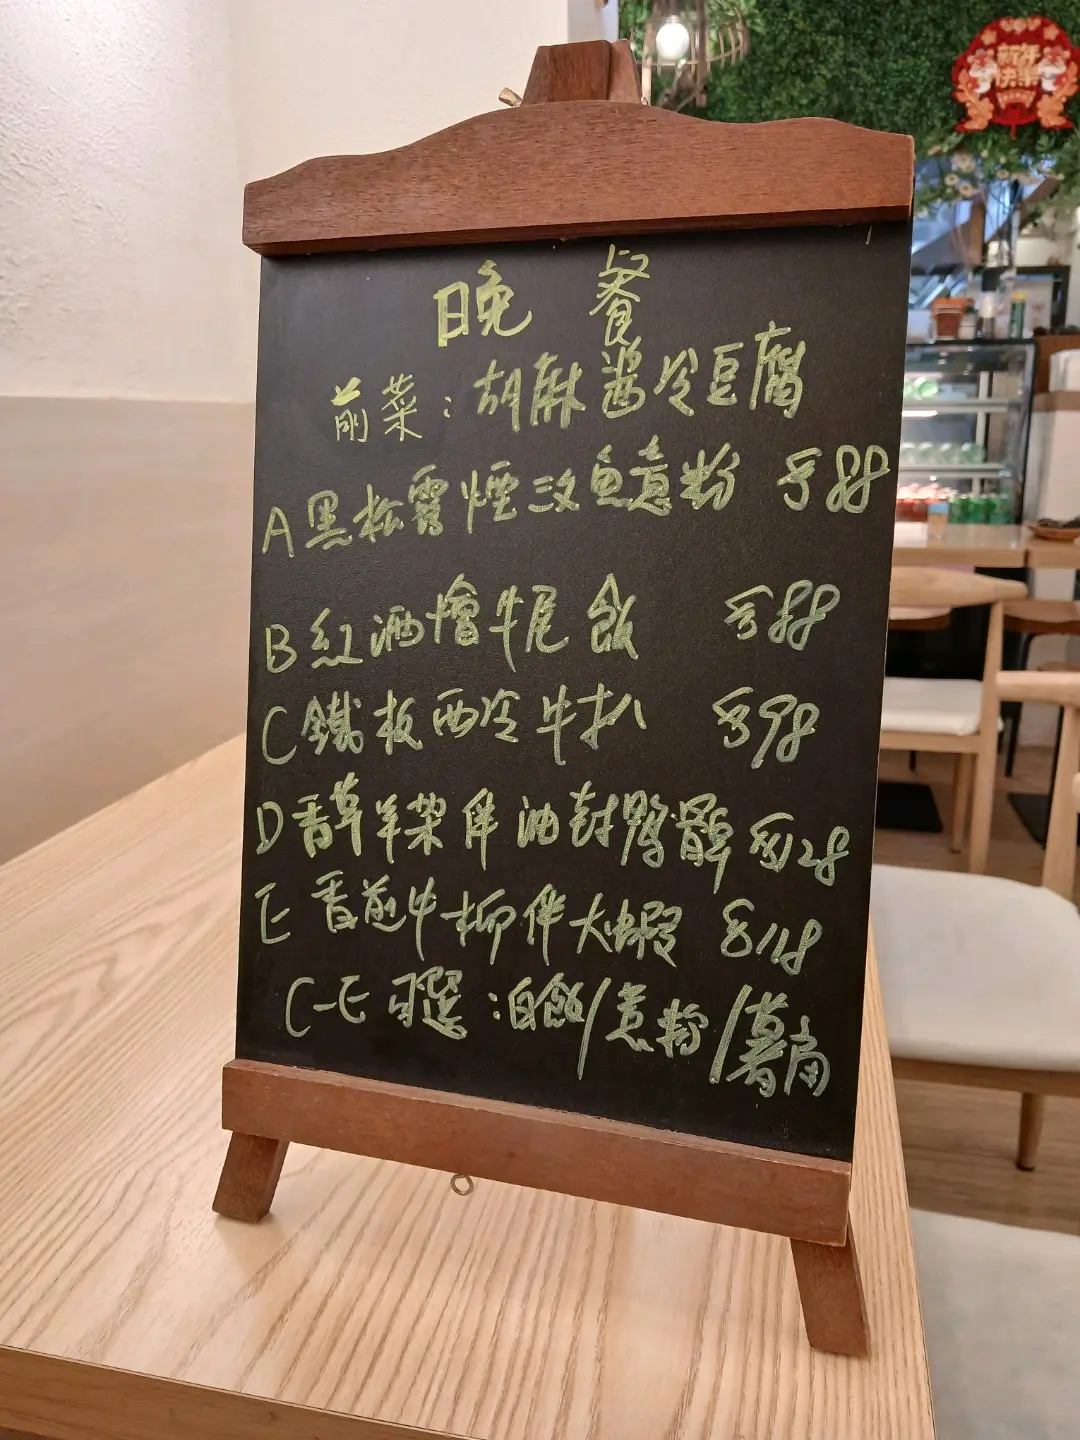 新年
快樂
晚 餐
前菜：胡麻醬冷豆腐
A 黑松露煙三文魚意粉 $88
B 紅酒燴牛尾飯 $88
C 鐵板西冷牛扒 $98
D 香草羊架伴油封鴨髀 $128
E 香煎牛柳伴大蝦 $118
C-E 可選：白飯/意粉/薯角